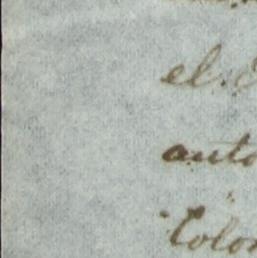 el
auto
Colon